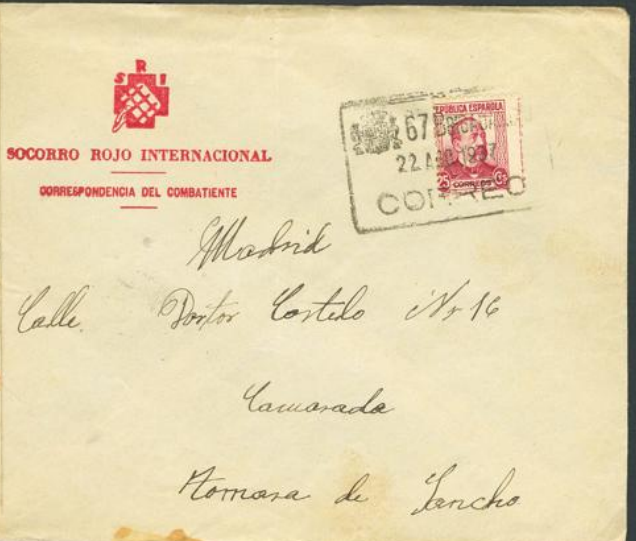 S R I
SOCORRO ROJO INTERNACIONAL
CORRESPONDENCIA DEL COMBATIENTE
67 BRIGADA
22 AGO. 1937
CORREO
REPÚBLICA ESPAÑOLA
25 CORREOS Cts
Madrid
Calle. Doctor Castelo Nr 16
Camarada
de Sancho